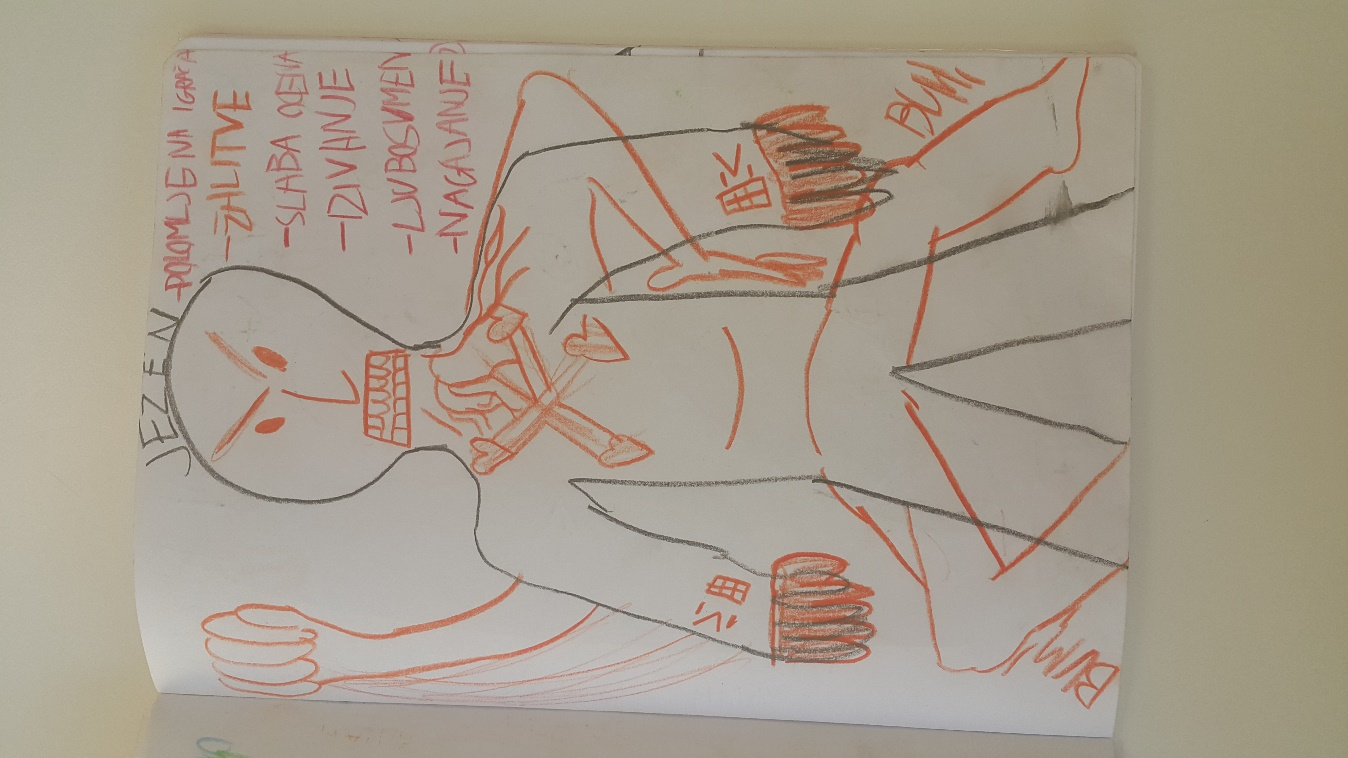 JEZEN
-POLOMLJENA IGRAČA
-ŽALITVE
-SLABA OCENA
-IZIVANJE
-LJUBOSUMEN
-NAGAJANJE
BUM
BUM